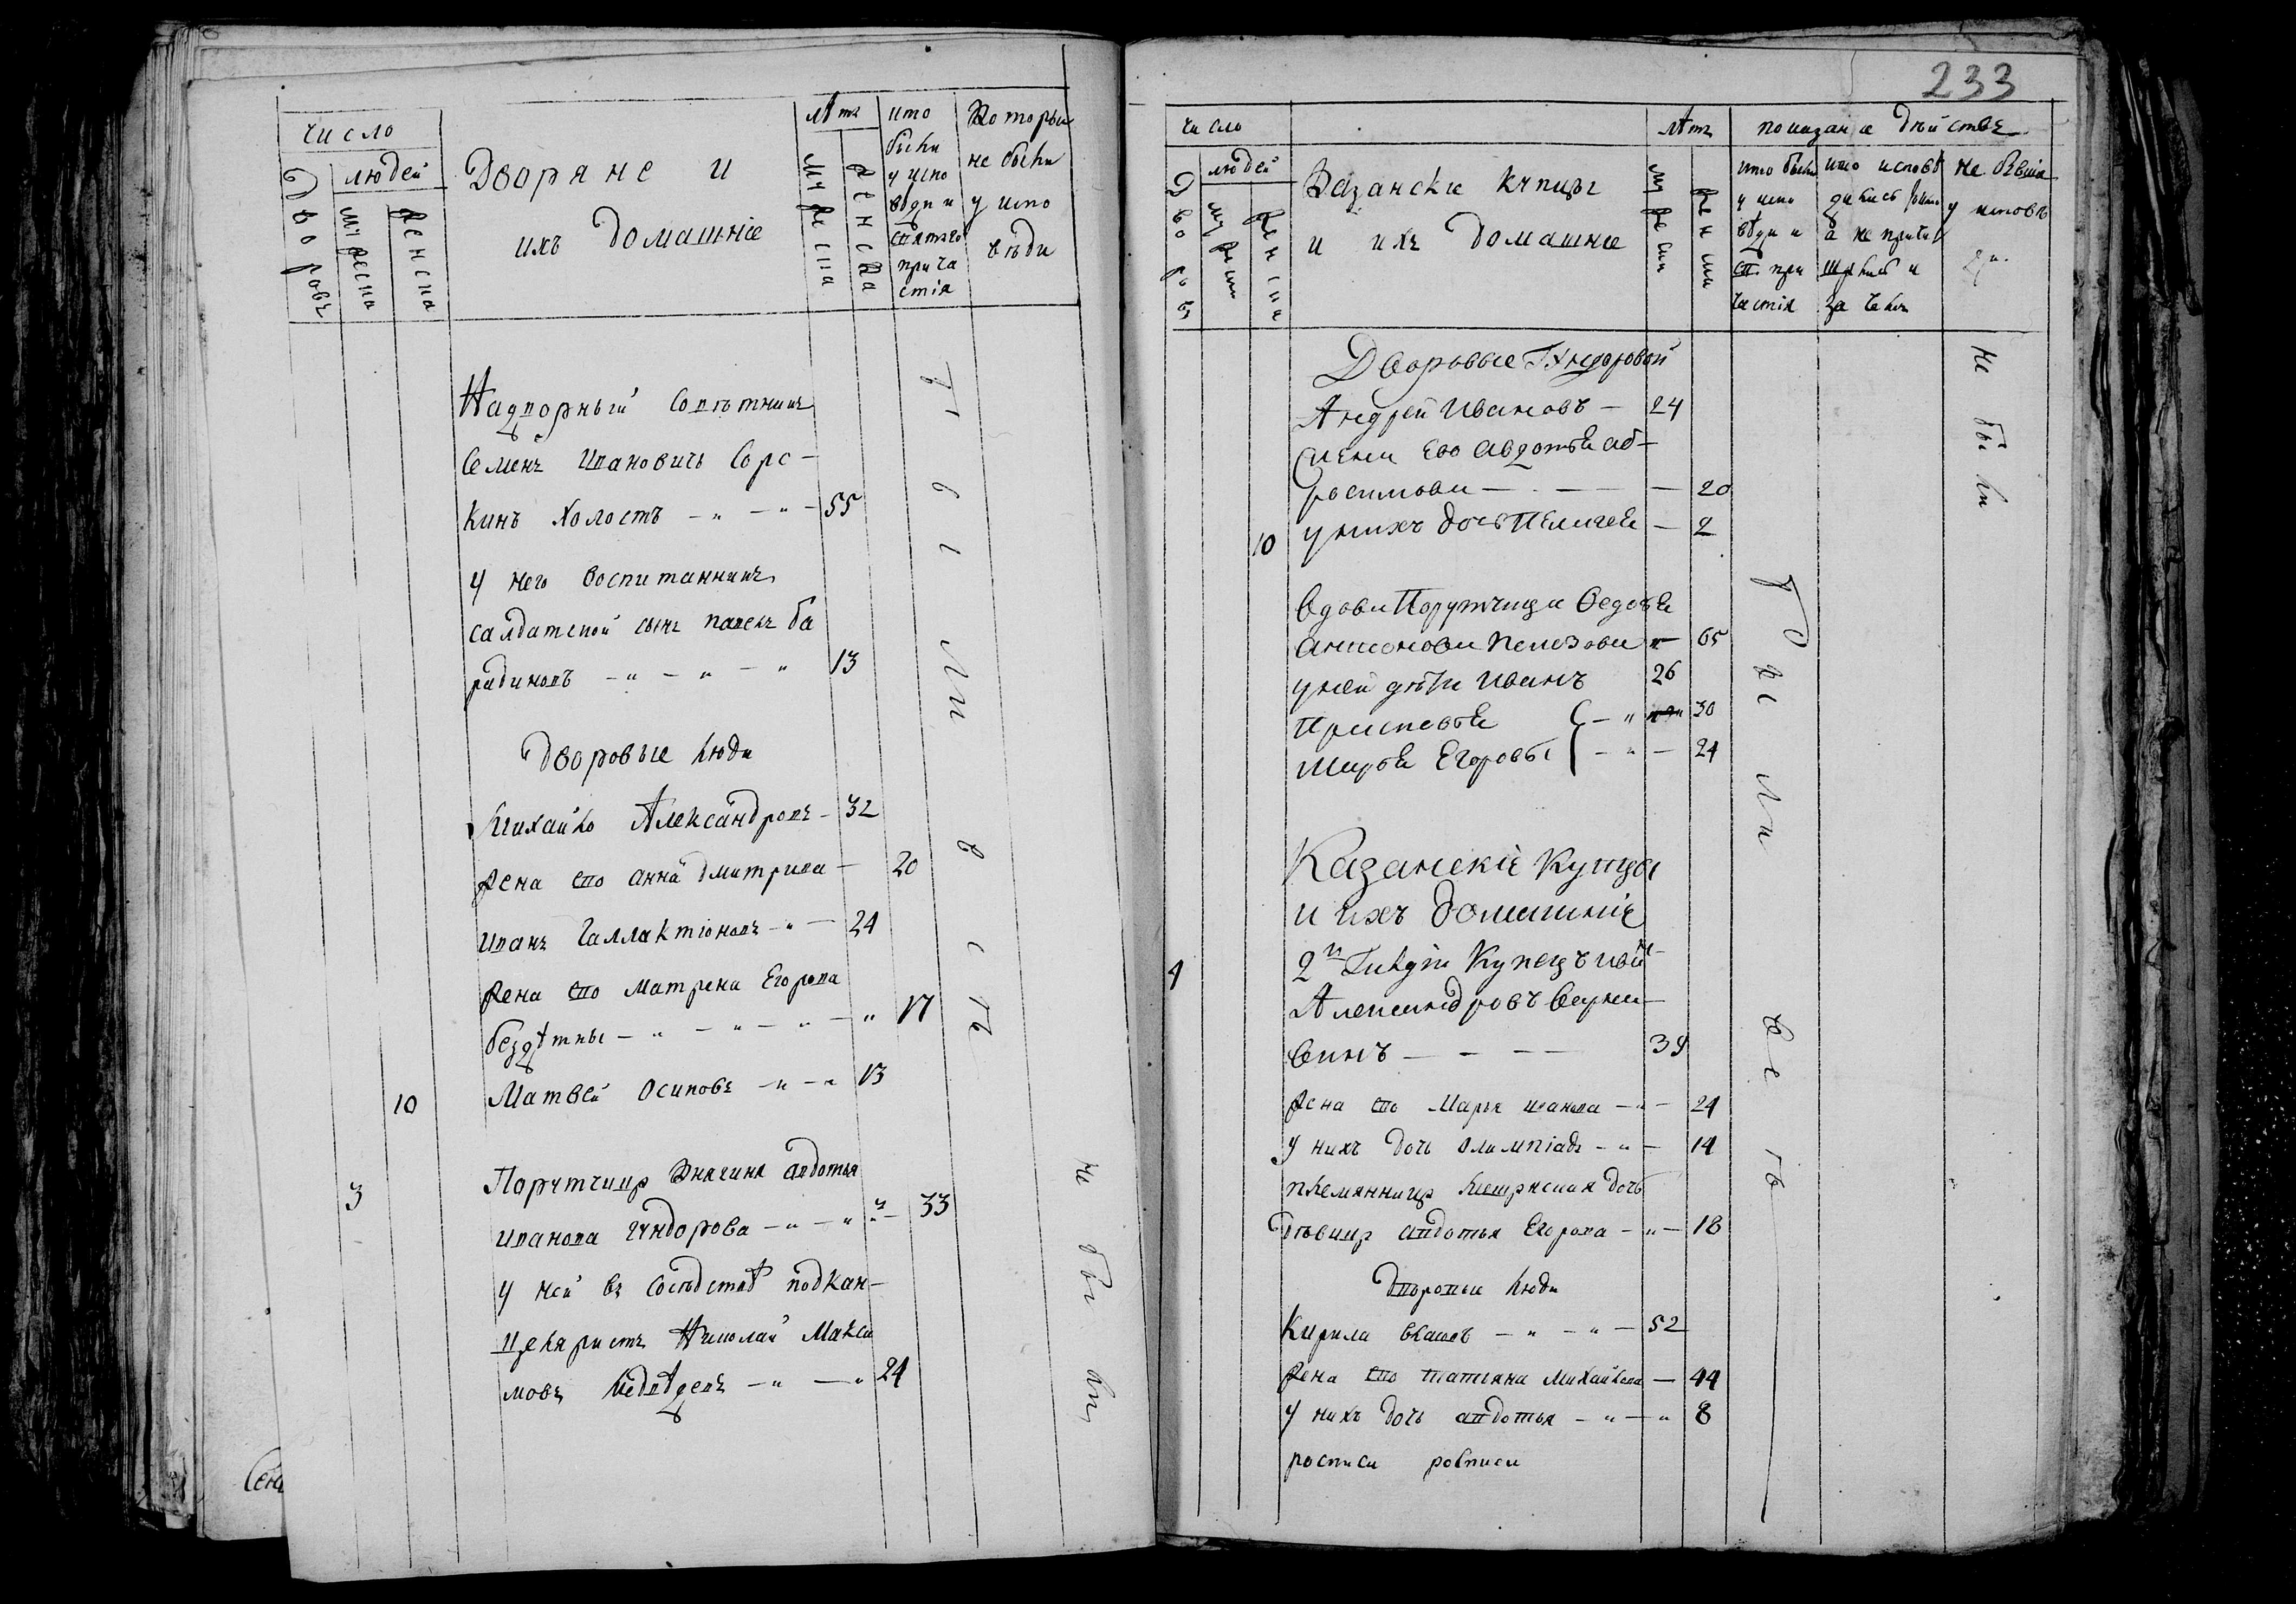 число
людей
Дворовъ
мужеска
женска
Дворяне и
ихъ домашніе
лѣтъ
мужеска
женска
кто
были
у испо
вѣди и
святаго
прича
стія
Которыи
не были
у испо
вѣди
Надворный Совѣтникъ
Семенъ Ивановичъ Сорс-
кинъ холостъ 55
у него воспитанникъ
салдатской сынъ павелъ ба
радиновъ 13
дворовые люди
Михайло Александровъ 32
жена его анна дмитріева 20
иванъ Галлактіоновъ 24
жена его матрена Егорова
бездѣтны 17
10 Матвей Осиповъ 13
3 Порутчица Княгиня авдотья
иванова гундорова 33
у ней въ сосѣдствѣ подкан-
целяристъ Николай Макси
мовъ медвѣдевъ 24
были все
не были
233
число
людей
Дворовъ
мужеска
женска
Казански купцы
и ихъ домашніе
лѣтъ
мужеска
женска
показаніе дѣйствъ
кто были
у испо
вѣди и
св. при
частія
кто исповѣ
дались
а не прича
щались и
за чемъ
не бывши
у исповѣ
ди
Дворовые Гундоровой
Андрей Ивановъ 24
жена Его авдотья аб-
росимова 20
10 у нихъ дочь Пелагея 2
вдова Порутчица Федосья
антонова 65
у ней дѣти Иванъ 26
30
Марья Егоровы 24
не были
Казанскіе Купцы
и ихъ домашніе
1 2й Гильдіи Купецъ
Александровъ
39
жена его Марья иванова 24
у нихъ дочь Олимпіада 14
племянница дочь
дѣвица авдотья Егорова 18
дворовые люди
Кирила 52
жена его татьяна михайлова 44
у нихъ дочь авдотья 8
росписи росписи
были все